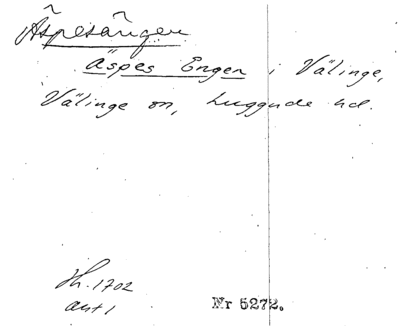 Äspesängen
Äspes Enger i Välinge,
Välinge sn, Luggude hd.
Hh. 1702
ant 1
Nr 5272.